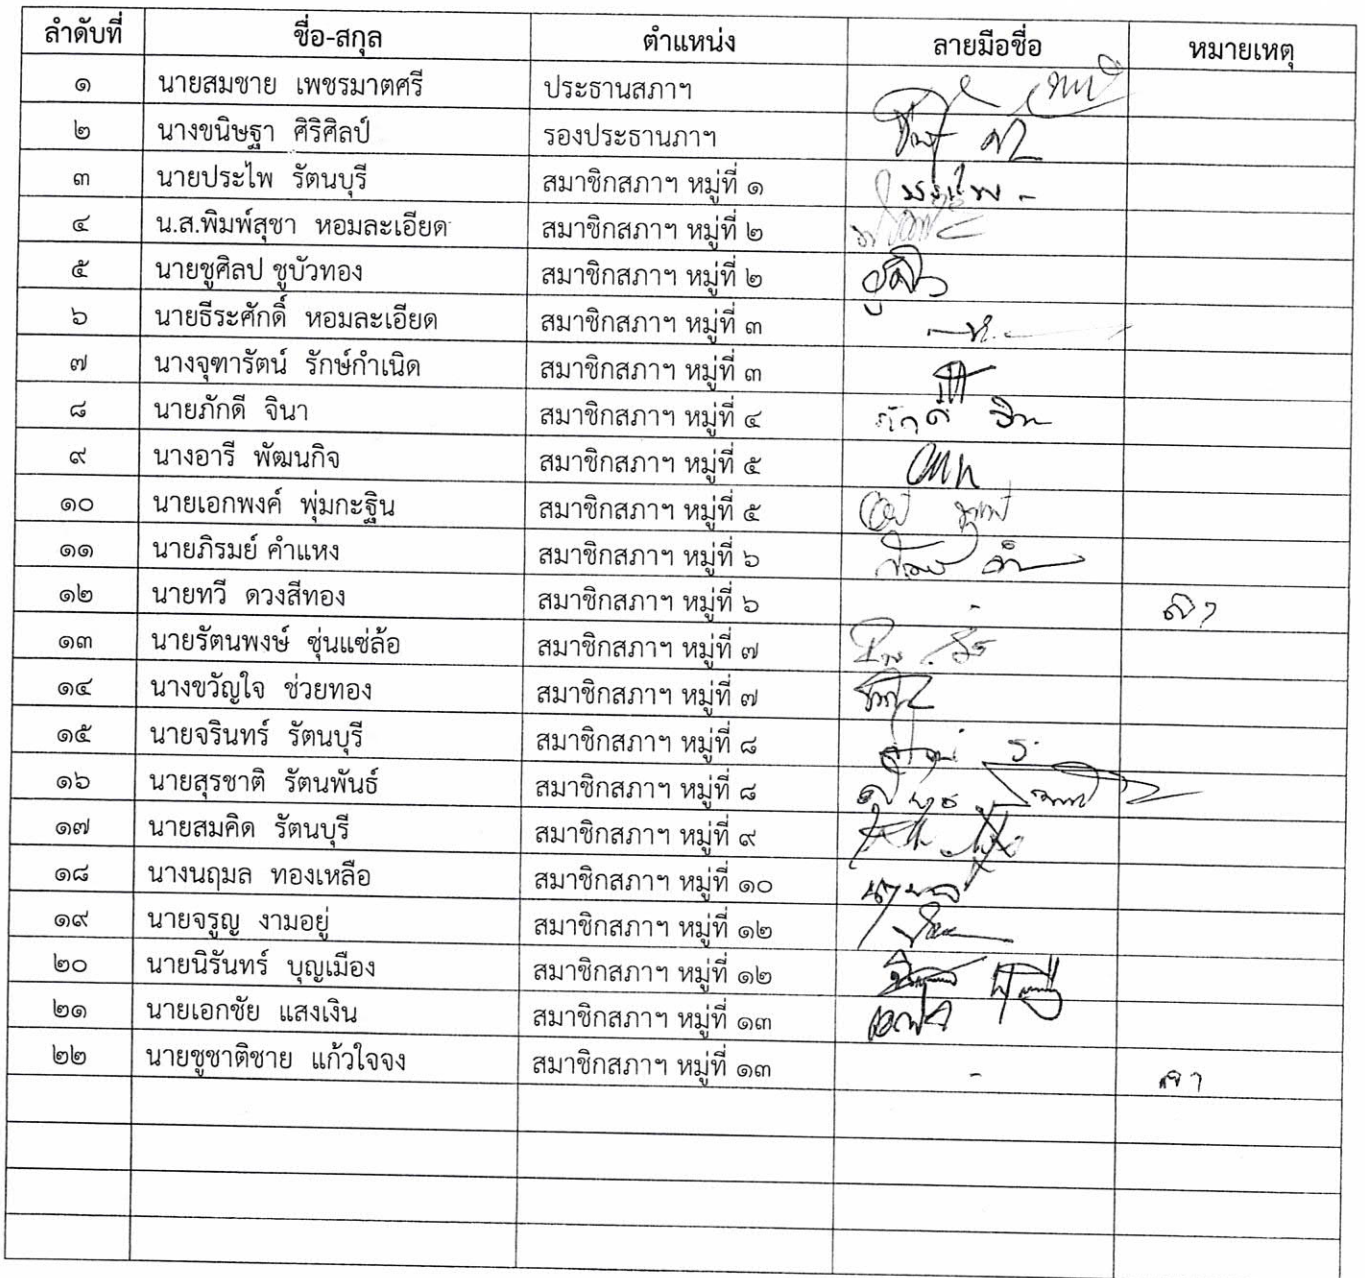 ลำดับที่ ชื่อ-สกุล ตำแหน่ง ลายมือชื่อ หมายเหตุ
๑ นายสมชาย เพชรมาตศรี ประธานสภาฯ
๒ นางขนิษฐา ศิริศิลป์ รองประธานภาฯ
๓ นายประไพ รัตนบุรี สมาชิกสภาฯ หมู่ที่ ๑
๔ น.ส.พิมพ์สุชา หอมละเอียด สมาชิกสภาฯ หมู่ที่ ๒
๕ นายชูศิลป ชูบัวทอง สมาชิกสภาฯ หมู่ที่ ๒
๖ นายธีระศักดิ์ หอมละเอียด สมาชิกสภาฯ หมู่ที่ ๓
๗ นางจุฑารัตน์ รักษ์กำเนิด สมาชิกสภาฯ หมู่ที่ ๓
๘ นายภักดี จินา สมาชิกสภาฯ หมู่ที่ ๔
๙ นางอารี พัฒนกิจ สมาชิกสภาฯ หมู่ที่ ๕
๑๐ นายเอกพงค์ พุ่มกะฐิน สมาชิกสภาฯ หมู่ที่ ๕
๑๑ นายภิรมย์ คำแหง สมาชิกสภาฯ หมู่ที่ ๖
๑๒ นายทวี ดวงสีทอง สมาชิกสภาฯ หมู่ที่ ๖ - ลา
๑๓ นายรัตนพงษ์ ซุ่นแซ่ล้อ สมาชิกสภาฯ หมู่ที่ ๗
๑๔ นางขวัญใจ ช่วยทอง สมาชิกสภาฯ หมู่ที่ ๗
๑๕ นายจรินทร์ รัตนบุรี สมาชิกสภาฯ หมู่ที่ ๘
๑๖ นายสุรชาติ รัตนพันธ์ สมาชิกสภาฯ หมู่ที่ ๘
๑๗ นายสมคิด รัตนบุรี สมาชิกสภาฯ หมู่ที่ ๙
๑๘ นางนฤมล ทองเหลือ สมาชิกสภาฯ หมู่ที่ ๑๐
๑๙ นายจรูญ งามอยู่ สมาชิกสภาฯ หมู่ที่ ๑๒
๒๐ นายนิรันทร์ บุญเมือง สมาชิกสภาฯ หมู่ที่ ๑๒
๒๑ นายเอกชัย แสงเงิน สมาชิกสภาฯ หมู่ที่ ๑๓
๒๒ นายชูชาติชาย แก้วใจจง สมาชิกสภาฯ หมู่ที่ ๑๓ - ลา